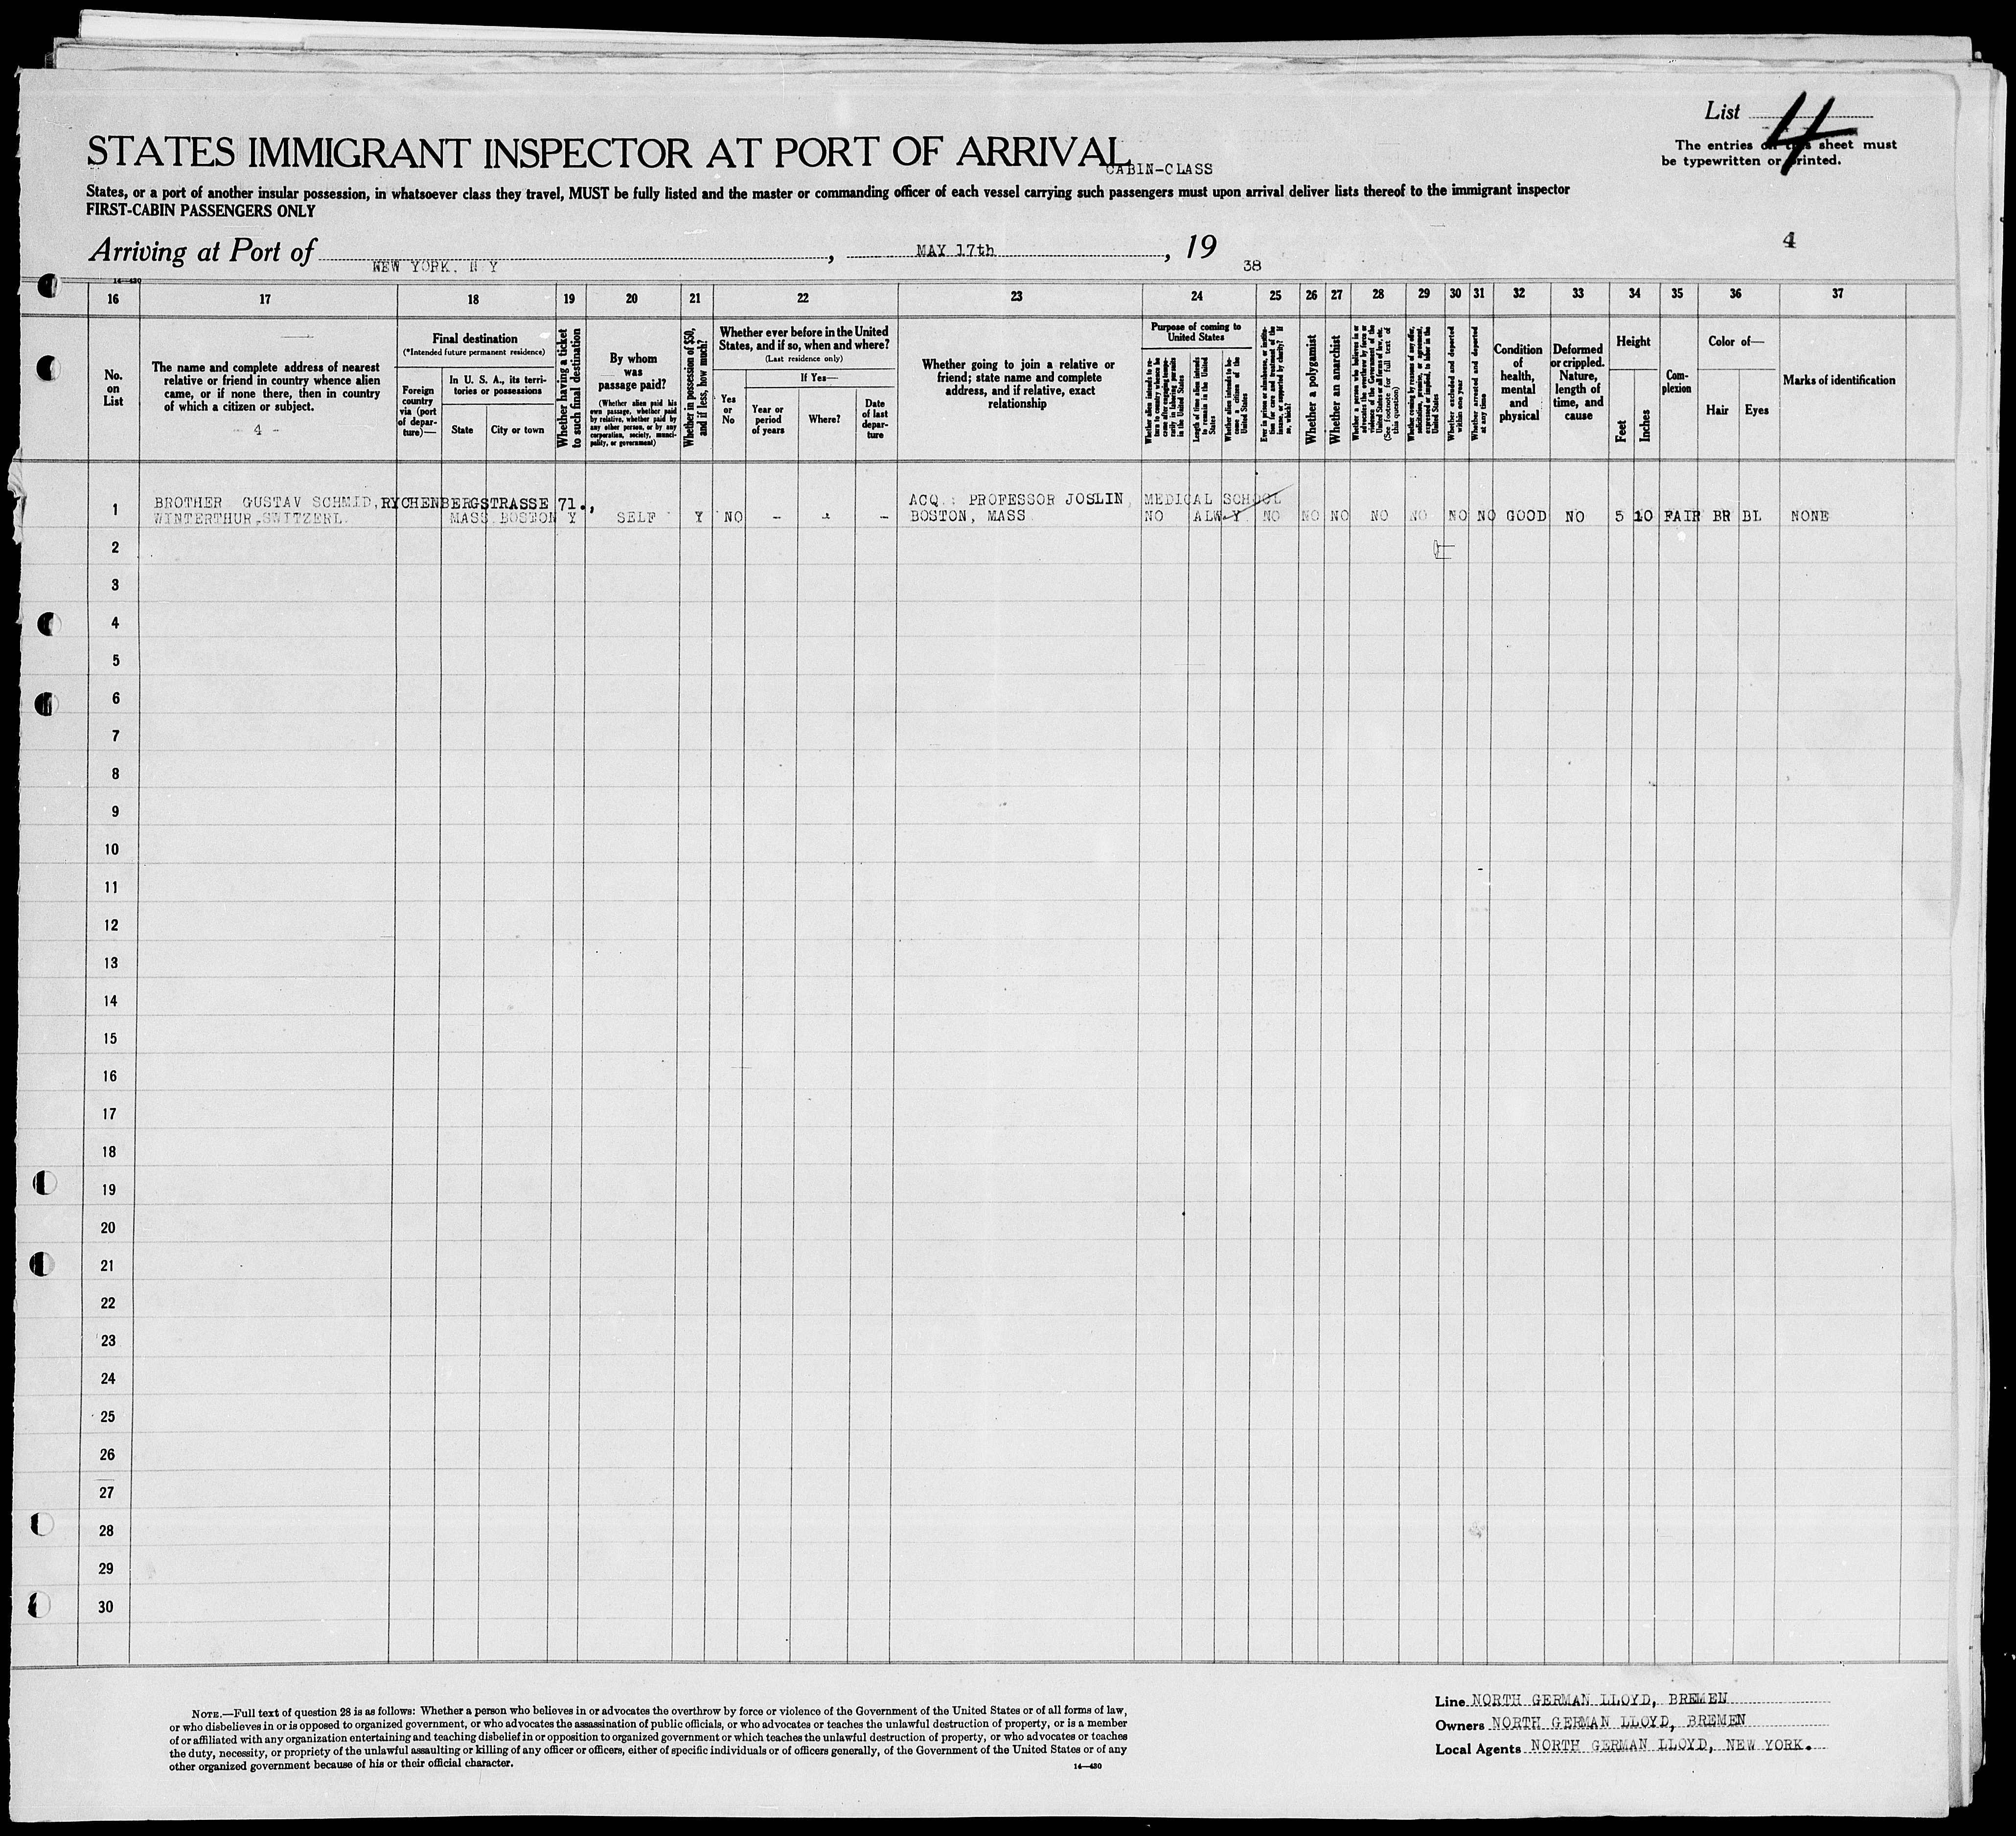 List 4
The entries on this sheet must
be typewritten or printed.
STATES IMMIGRANT INSPECTOR AT PORT OF ARRIVAL
CABIN-CLASS
States, or a port of another insular possession, in whatsoever class they travel, MUST be fully listed and the master or commanding officer of each vessel carrying such passengers must upon arrival deliver lists thereof to the immigrant inspector
FIRST-CABIN PASSENGERS ONLY
Arriving at Port of NEW YORK. N Y, MAY 17th, 19 38
4
14—430
16 17 18 19 20 21 22 23 24 25 26 27 28 29 30 31 32 33 34 35 36 37
No.
on
List
The name and complete address of nearest
relative or friend in country whence alien
came, or if none there, then in country
of which a citizen or subject.
- 4 -
Final destination
(*Intended future permanent residence)
Foreign
country
via (port
of depar-
ture)—
In U. S. A., its terri-
tories or possessions
State
City or town
Whether having a ticket
to such final destination
By whom
was
passage paid?
(Whether alien paid his
own passage, whether paid
by relative, whether paid by
any other person, or by any
corporation, society, munici-
pality, or government)
Whether in possession of $50,
and if less, how much?
Whether ever before in the United
States, and if so, when and where?
(Last residence only)
Yes
or
No
If Yes—
Year or
period
of years
Where?
Date
of last
depar-
ture
Whether going to join a relative or
friend; state name and complete
address, and if relative, exact
relationship
Purpose of coming to
United States
Whether alien intends to re-
turn to country whence he
came after engaging tempo-
rarily in laboring pursuits
in the United States
Length of time alien intends
to remain in the United
States
Whether alien intends to be-
come a citizen of the
United States
Ever in prison or almshouse, or institu-
tion for care and treatment of the
insane, or supported by charity? If
so, which?
Whether a polygamist
Whether an anarchist
Whether a person who believes in or
advocates the overthrow by force or
violence of the Government of the
United States or all forms of law, etc.
(See footnote for full text of
this question)
Whether coming by reason of any offer,
solicitation, promise, or agreement,
expressed or implied, to labor in the
United States
Whether excluded and deported
within one year
Whether arrested and deported
at any time
Condition
of
health,
mental
and
physical
Deformed
or crippled.
Nature,
length of
time, and
cause
Height
Feet
Inches
Com-
plexion
Color of—
Hair
Eyes
Marks of identification
BROTHER GUSTAV SCHMID, RYCHENBERGSTRASSE 71., ACQ.: PROFESSOR JOSLIN, MEDICAL SCHOOL
1 WINTERTHUR, SWITZERL. MASS BOSTON Y SELF Y NO - - - BOSTON, MASS NO ALW Y NO NO NO NO NO NO NO GOOD NO 5 10 FAIR BR BL NONE
2
3
4
5
6
7
8
9
10
11
12
13
14
15
16
17
18
19
20
21
22
23
24
25
26
27
28
29
30
NOTE.—Full text of question 28 is as follows: Whether a person who believes in or advocates the overthrow by force or violence of the Government of the United States or of all forms of law,
or who disbelieves in or is opposed to organized government, or who advocates the assassination of public officials, or who advocates or teaches the unlawful destruction of property, or is a member
of or affiliated with any organization entertaining and teaching disbelief in or opposition to organized government or which teaches the unlawful destruction of property, or who advocates or teaches
the duty, necessity, or propriety of the unlawful assaulting or killing of any officer or officers, either of specific individuals or of officers generally, of the Government of the United States or of any
other organized government because of his or their official character.
14—430
Line NORTH GERMAN LLOYD, BREMEN
Owners NORTH GERMAN LLOYD, BREMEN
Local Agents NORTH GERMAN LLOYD, NEW YORK.